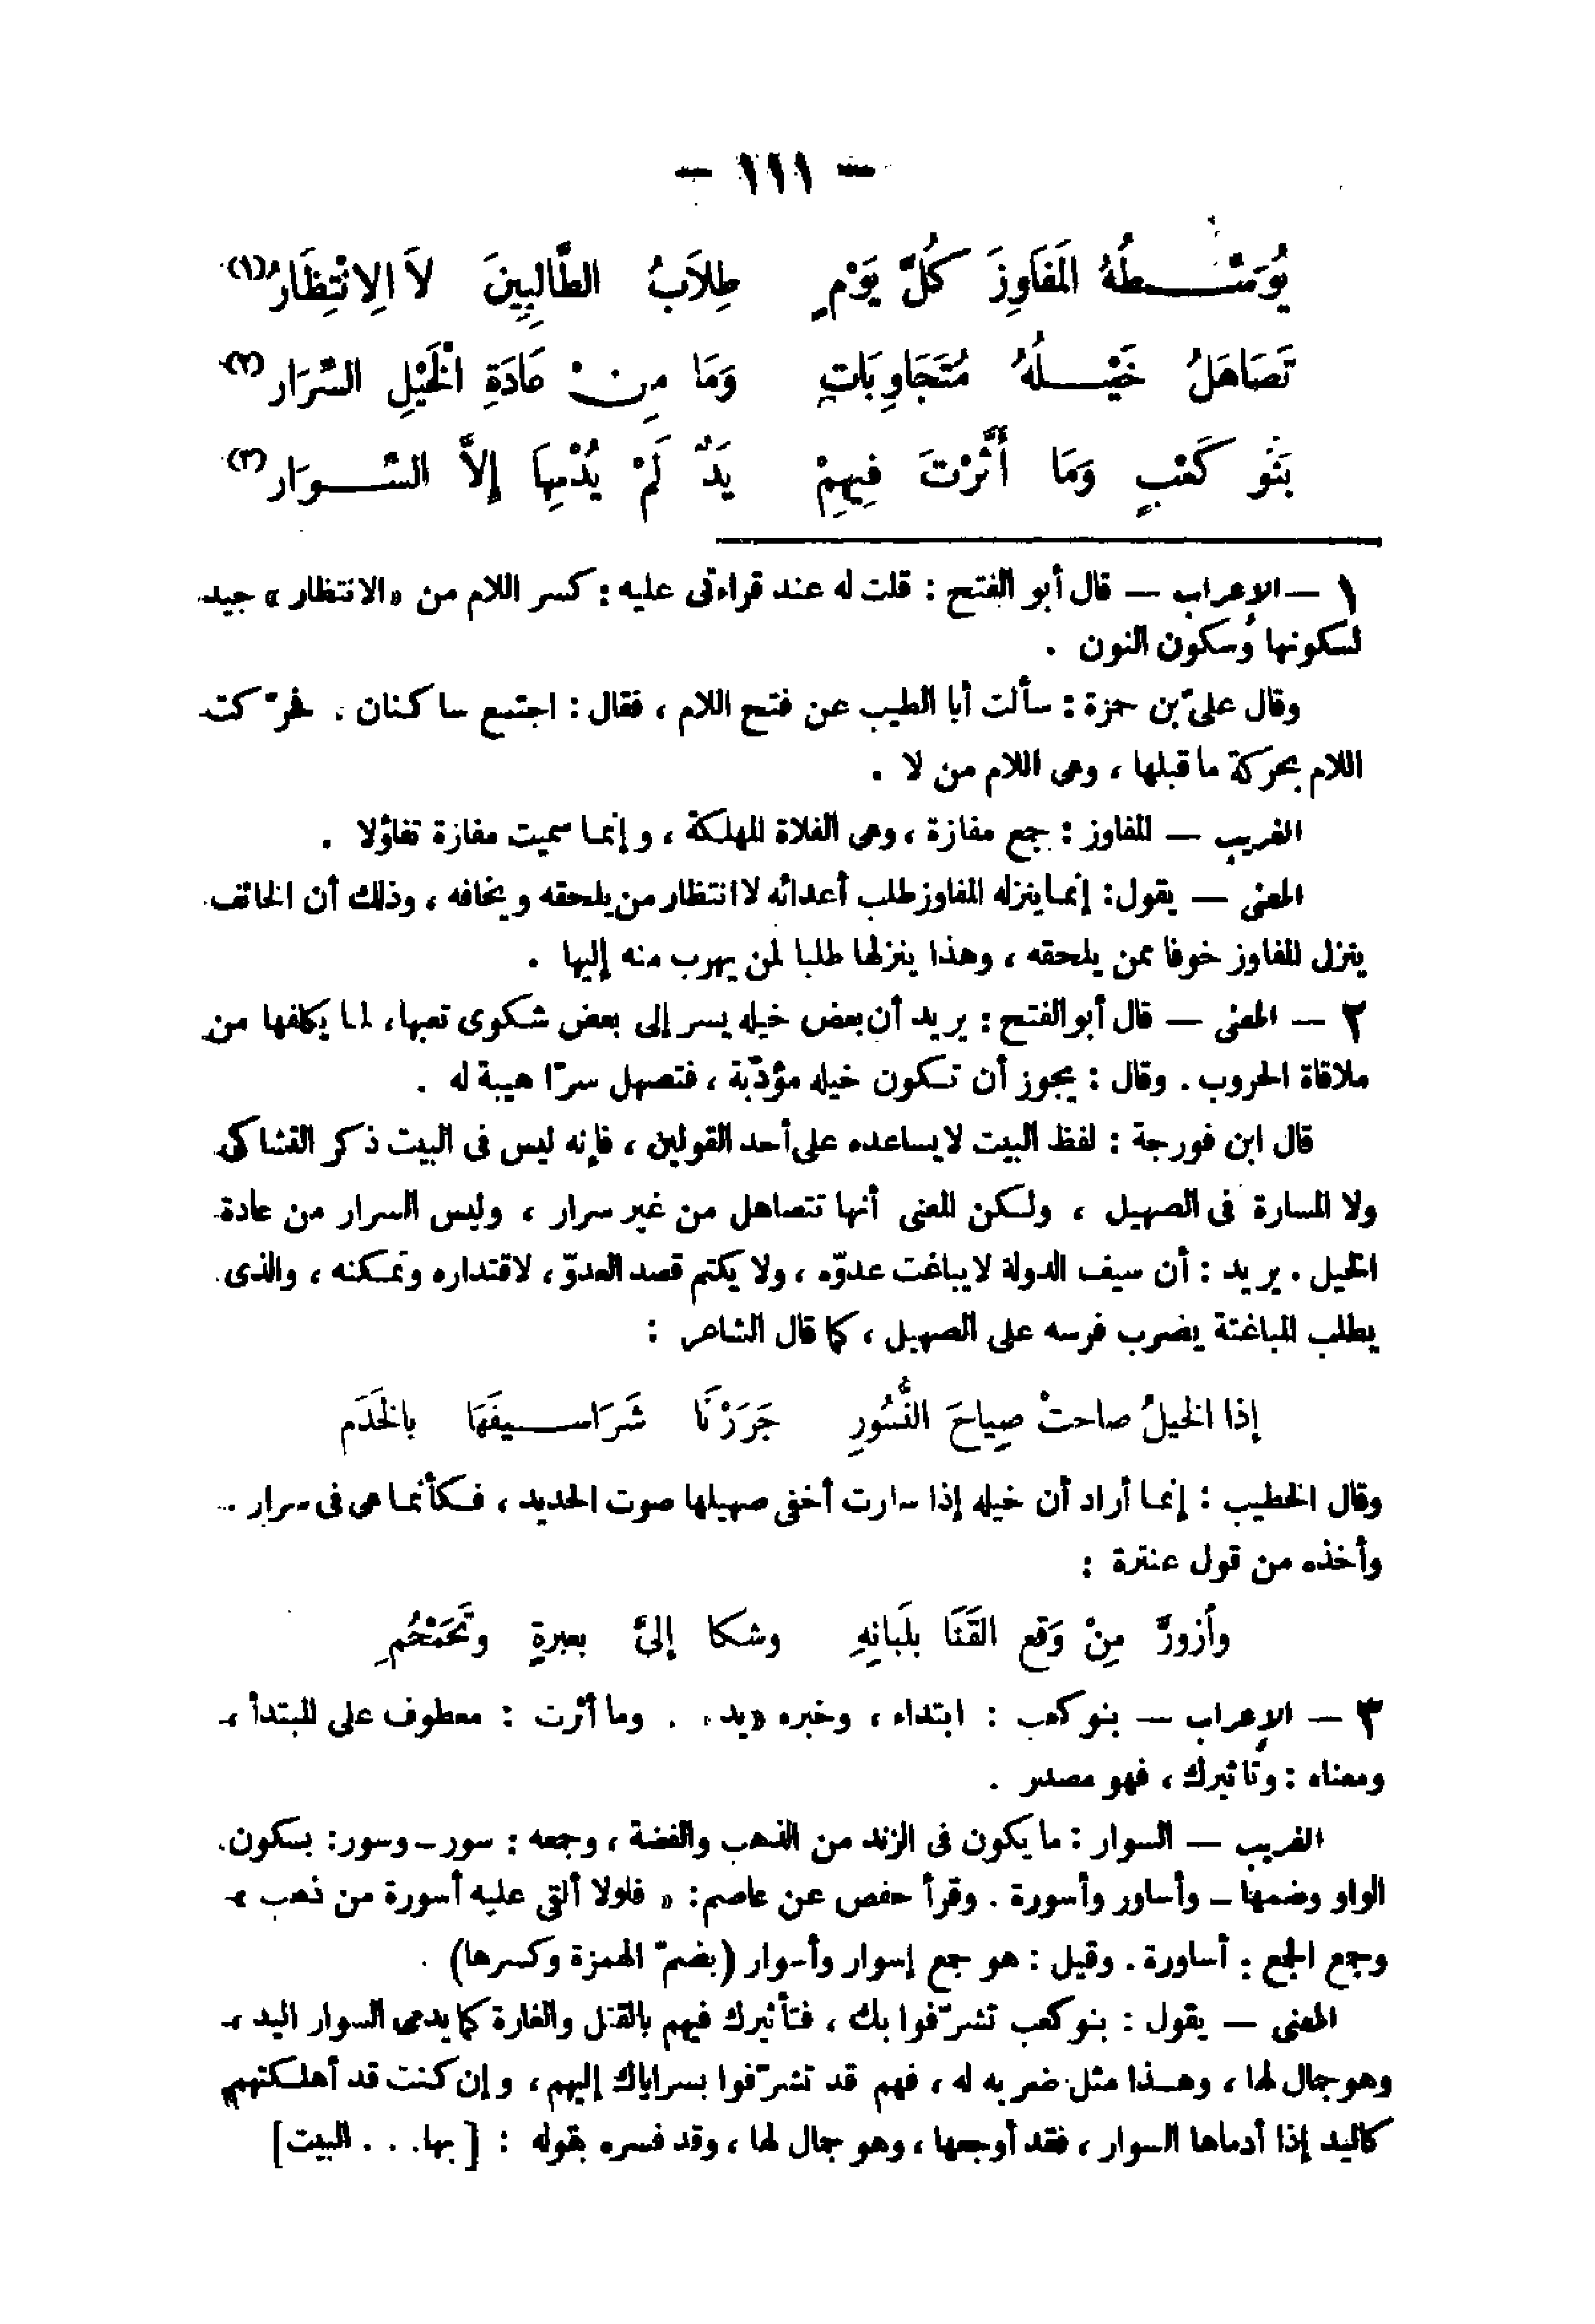 — ١١١ —
يُوَسِّطُهُ المَفَاوِزَ كُلَّ يَوْمٍ طِلاَبُ الطَّالِبِينَ لاَ الِانْتِظَارُ(١)
تَصَاهَلُ خَيْلُهُ مُتَجَاوِبَاتٍ وَمَا مِنْ عَادَةِ الْخَيْلِ السِّرَار(٢)
بَنُو كَعْبٍ وَمَا أَثَّرْتَ فِيهِمْ يَدٌ لَمْ يُدْمِهَا إِلاَّ السِّوَار(٣)
١ — الإعراب — قال أبو الفتح : قلت له عند قراءتى عليه : كسر اللام من «الانتظار» جيد
لسكونها وسكون النون .
وقال علىّ بن حمزة : سألت أبا الطيب عن فتح اللام ، فقال : اجتمع ساكنان . فحرّكت
اللام بحركة ما قبلها ، وهى اللام من لا .
الغريب — المفاوز : جمع مفازة ، وهى الفلاة المهلكة ، وإنما سميت مفازة تفاؤلا .
المعنى — يقول : إنما ينزله المفاوز طلب أعدائه لا انتظار من يلحقه ويخافه ، وذلك أن الخائف
ينزل المفاوز خوفا ممن يلحقه ، وهذا ينزلها طلبا لمن يهرب منه إليها .
٢ — المعنى — قال أبو الفتح : يريد أن بعض خيله يسر إلى بعض شكوى تعبها ، لما يكلفها من
ملاقاة الحروب . وقال : يجوز أن تكون خيله مؤدّبة ، فتصهل سرّا هيبة له .
قال ابن فورجة : لفظ البيت لا يساعده على أحد القولين ، فإنه ليس فى البيت ذكر التشاكى
ولا المسارة فى الصهيل ، ولكن المعنى أنها تتصاهل من غير سرار ، وليس السرار من عادة
الخيل . يريد : أن سيف الدولة لا يباغت عدوّه ، ولا يكتم قصد العدوّ ، لاقتداره وتمكنه ، والذى
يطلب المباغتة يضرب فرسه على الصهيل ، كما قال الشاعر :
إذا الخيلُ صاحتْ صِياحَ النُّسُورِ جَرَرْنَا شَرَاسِيفَهَا بالخَدَم
وقال الخطيب : إنما أراد أن خيله إذا سارت أخفى صهيلها صوت الحديد ، فكأنما هى فى سرار .
وأخذه من قول عنترة :
وأزورَّ مِنْ وَقعِ القَنَا بلَبانِهِ وشكا إلىَّ بعبرةٍ وتَحَمْحُمِ
٣ — الإعراب — بنو كعب : ابتداء ، وخبره «يد» . وما أثرت : معطوف على المبتدأ ،
ومعناه : وتأثيرك ، فهو مصدر .
الغريب — السوار : ما يكون فى الزند من الذهب والفضة ، وجمعه : سور - وسور : بسكون
الواو وضمها - وأساور وأسورة . وقرأ حفص عن عاصم : « فلولا ألقى عليه أسورة من ذهب »
وجمع الجمع : أساورة . وقيل : هو جمع إسوار وأسوار (بضمّ الهمزة وكسرها) .
المعنى — يقول : بنو كعب تشرّفوا بك ، فتأثيرك فيهم بالقتل والغارة كما يدمى السوار اليد ،
وهو جمال لها ، وهذا مثل ضربه له ، فهم قد تشرّفوا بسراياك إليهم ، وإن كنت قد أهلكتهم
كاليد إذا أدماها السوار ، فقد أوجعها ، وهو جمال لها ، وقد فسره بقوله : [ بها . . . البيت]